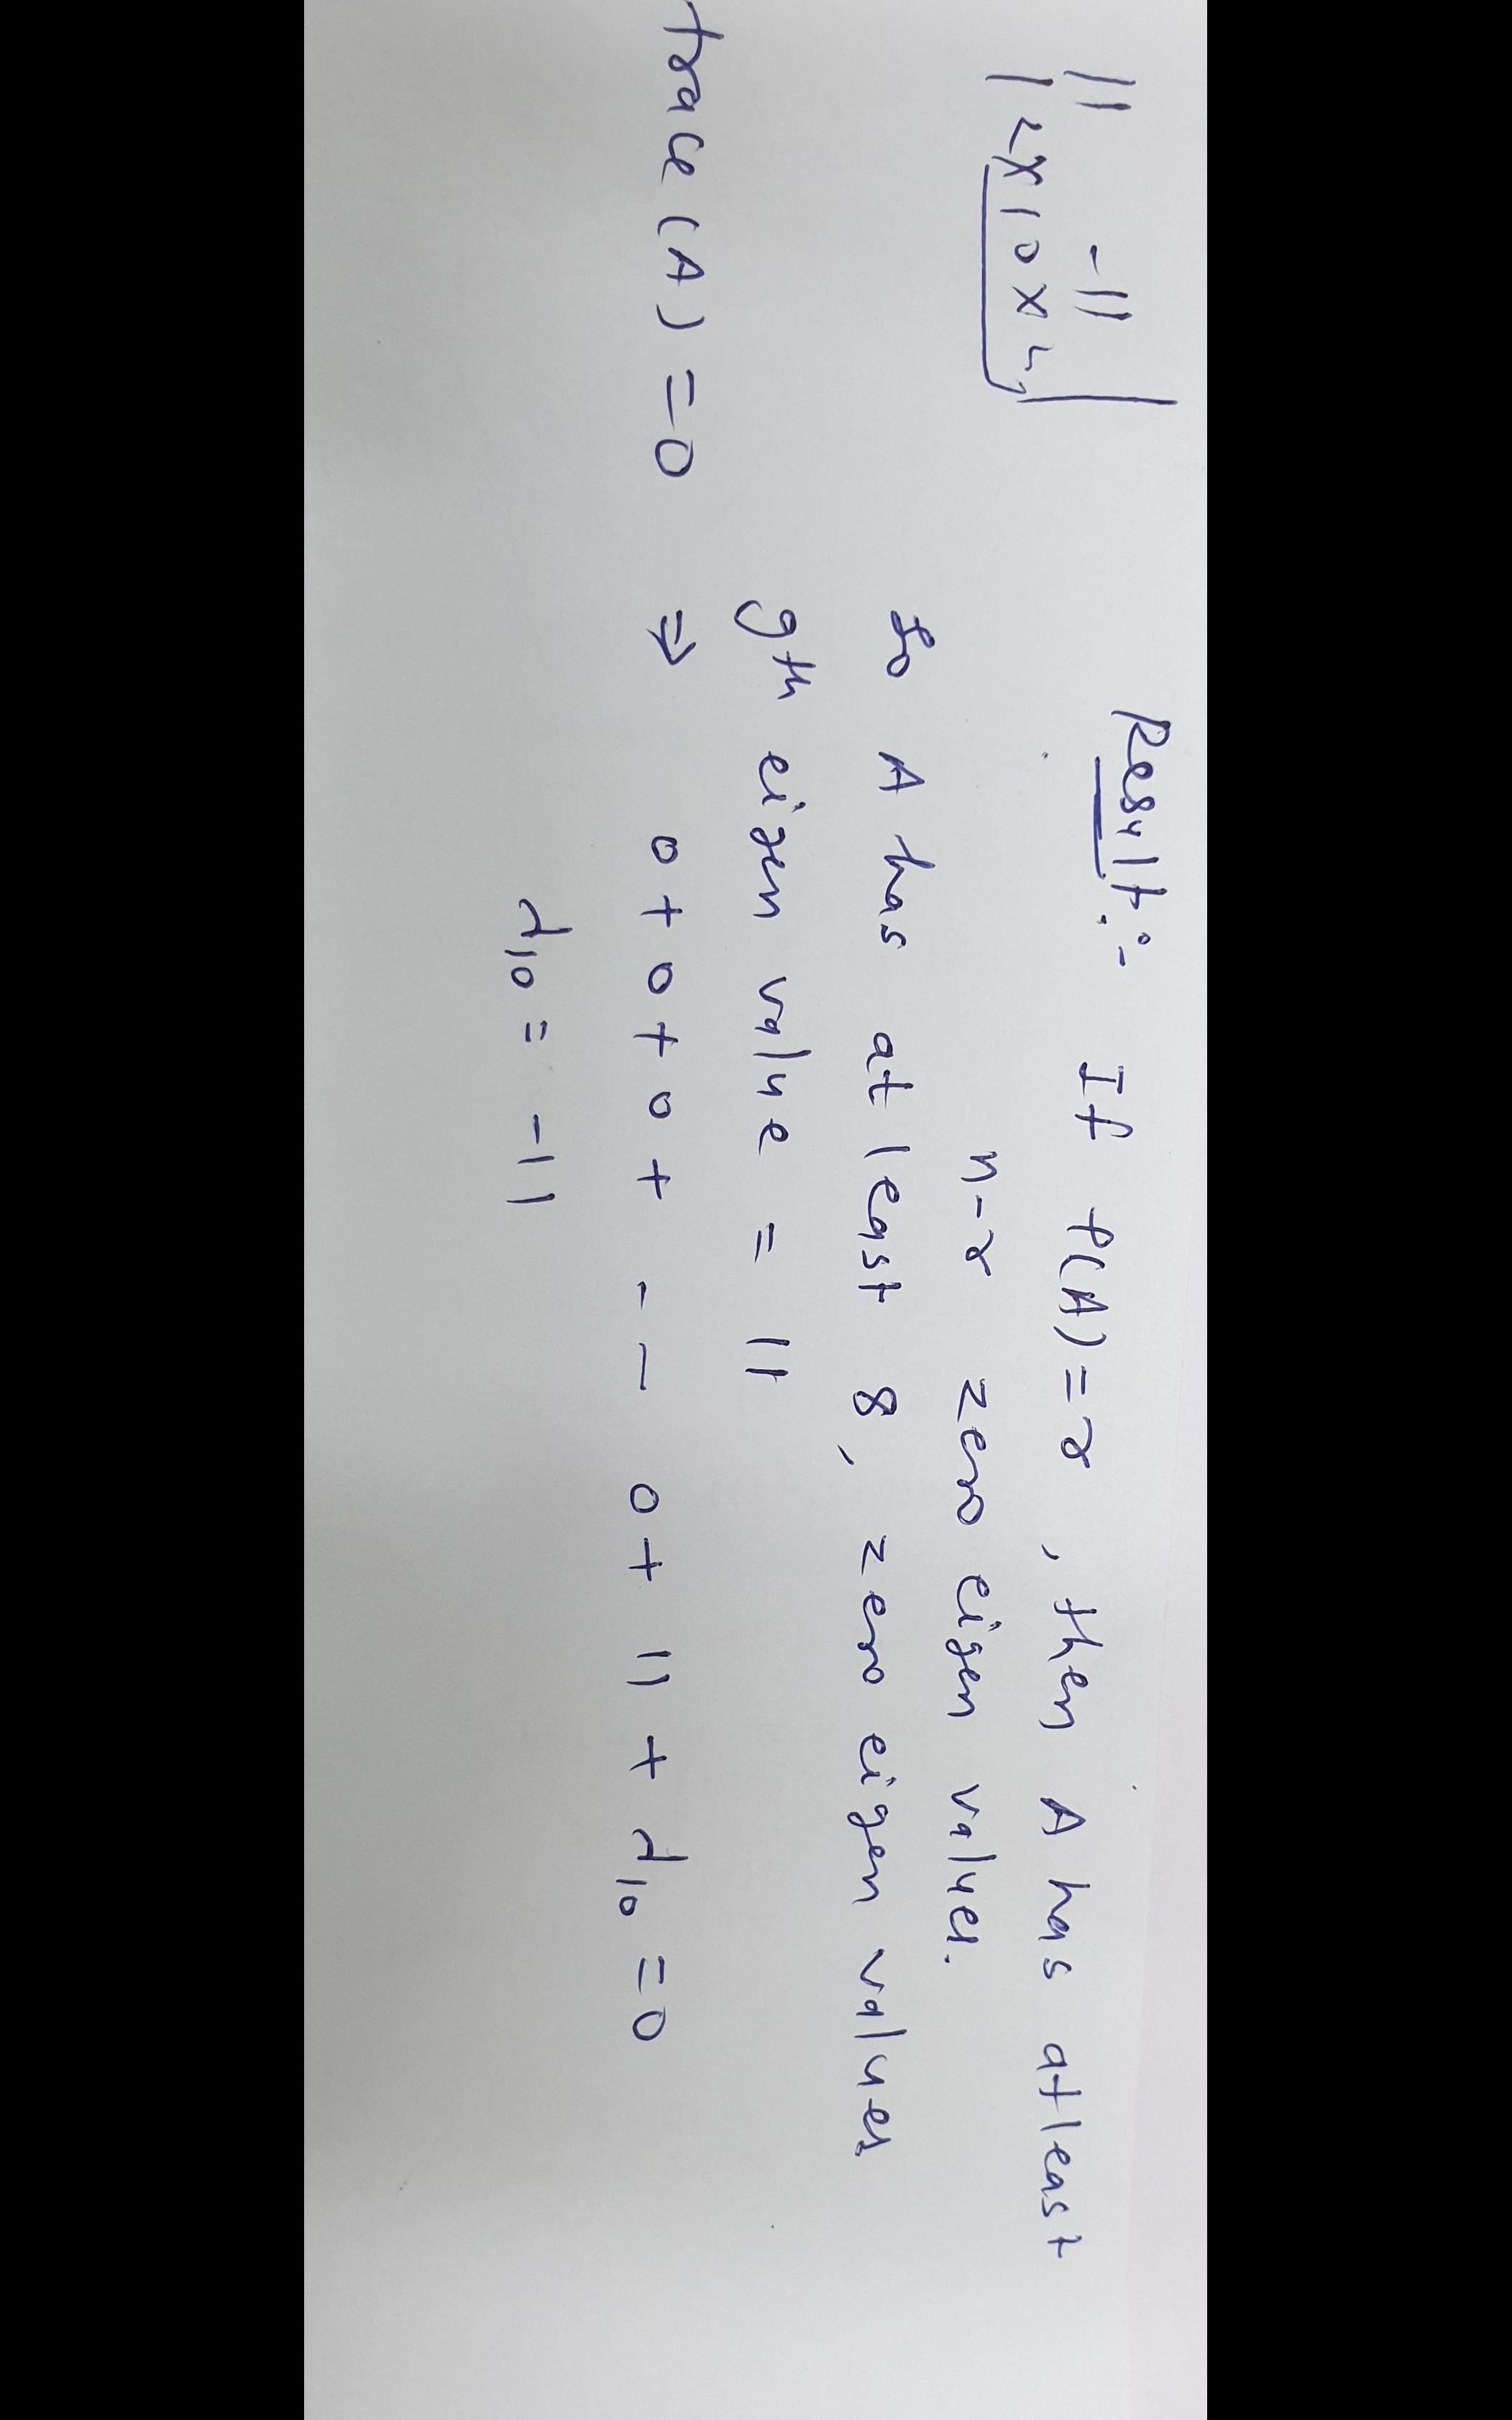 11 -11
Result:- If ρ(A)=r, then A has atleast
n-r zero eigen values.
So A has at least 8, zero eigen values
9th eigen value = 11
trace(A)=0 ⇒ 0+0+0+ - - 0+11+λ10=0
λ10 = -11